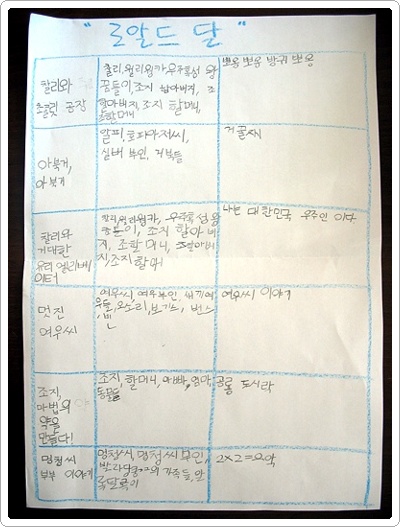 "로알드 달"
찰리와
초콜릿 공장
찰리, 윌리웡카, 우주혹성 왕
꿈틀이, 조지 할아버지, 조
할아버지, 조지 할머니,
조할머니
뽀옹 뽀옹 방귀 뽀옹
아북거,
아북거
알피, 호피아저씨,
실버 부인, 거북들
거꿀씨
찰리와
거대한
유리 엘리베
이터
찰리, 윌리웡카, 우주혹성 왕
꿈틀이, 조지 할아버
지, 조할머니, 조할아버
지, 조지 할머
나는 대한민국 우주인 이다
멋진
여우씨
여우씨, 여우부인, 새끼여
우들, 오소리, 보기스, 번스,
빈
여우씨 이야기
조지,
마법의
약을
만들다!
조지, 할머니, 아빠, 엄마
동물들
공룡 도시락
멍청씨
부부 이야기
멍청씨, 멍청씨 부인,
가족들, 알
록달록이
2×2=